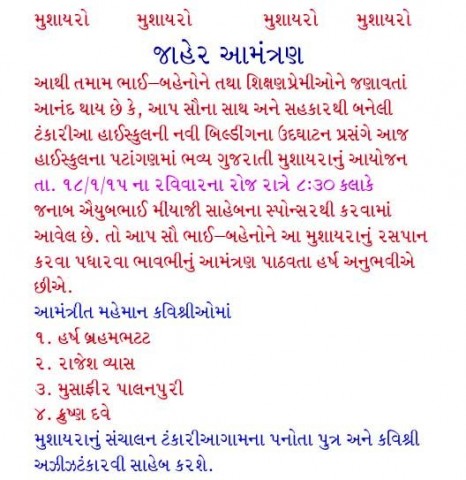 મુશાયરો મુશાયરો મુશાયરો મુશાયરો
જાહેર આમંત્રણ
આથી તમામ ભાઈ–બહેનોને તથા શિક્ષણપ્રેમીઓને જણાવતાં
આનંદ થાય છે કે, આપ સૌના સાથ અને સહકારથી બનેલી
ટંકારીઆ હાઈસ્કુલની નવી બિલ્ડીંગના ઉદઘાટન પ્રસંગે આજ
હાઈસ્કુલના પટાંગણમાં ભવ્ય ગુજરાતી મુશાયરાનું આયોજન
તા. ૧૮/૧/૧૫ ના રવિવારના રોજ રાત્રે ૮:૩૦ કલાકે
જનાબ ઐયુબભાઈ મીયાજી સાહેબના સ્પોન્સરથી કરવામાં
આવેલ છે. તો આપ સૌ ભાઈ–બહેનોને આ મુશાયરાનું રસપાન
કરવા પધારવા ભાવભીનું આમંત્રણ પાઠવતા હર્ષ અનુભવીએ
છીએ.
આમંત્રીત મહેમાન કવિશ્રીઓમાં
૧. હર્ષ બ્રહમભટટ
૨. રાજેશ વ્યાસ
૩. મુસાફીર પાલનપુરી
૪. ક્રુષ્ણ દવે
મુશાયરાનું સંચાલન ટંકારીઆગામના પનોતા પુત્ર અને કવિશ્રી
અઝીઝટંકારવી સાહેબ કરશે.